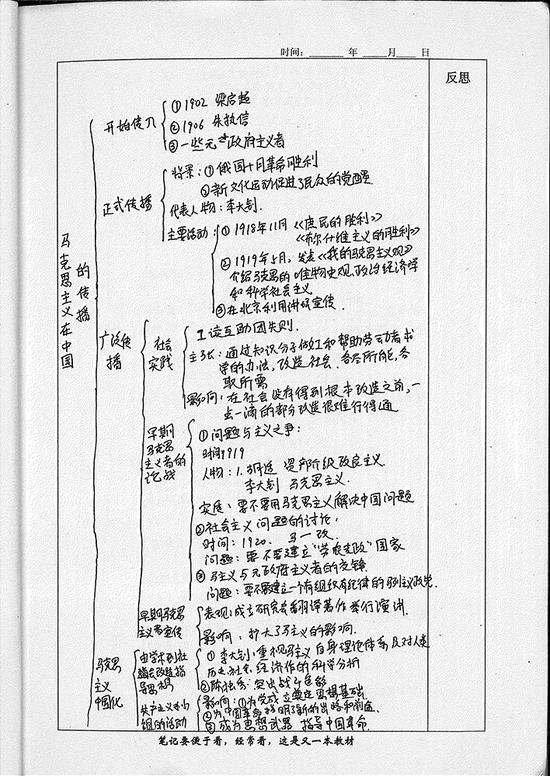 时间： 年 月 日
反思
马克思主义在中国的传播
开始传入
①1902 梁启超
②1906 朱执信
③一些无政府主义者
正式传播
背景：①俄国十月革命胜利
②新文化运动促进了民众的觉醒
代表人物：李大钊.
主要活动：
①1918年11月《庶民的胜利》
《布尔什维主义的胜利》
②1919年5月，发表《我的马克思主义观》
介绍马克思的唯物史观、政治经济学
和科学社会主义
③在北京利用讲坛宣传.
广泛传播
社会实践
工读互助团失败.
主张：通过知识分子做工和帮助劳动者求
学的办法，改造社会. 各尽所能，各
取所需
影响：在社会没有得到根本改造之前，一
点一滴的部分改造很难行得通
早期马克思主义者的论战
①问题与主义之争：
时间1919
人物：1.胡适 资产阶级改良主义.
李大钊 马克思主义.
实质：要不要用马克思主义解决中国问题
②社会主义问题的讨论：
时间：1920.
问题：要不要建立"劳农专政"国家
③马主义与无政府主义者的交锋
问题：要不要建立一个有组织有纪律的马列主义政党.
早期马克思主义者宣传
表现：成立研究会翻译著作举行演讲.
影响：扩大了马主义的影响.
马克思主义中国化
①李大钊：重视马主义自身理论体系及对人类
历史社会经济作的科学分析
②陈独秀：突出战斗色彩
共产主义小组的活动
影响：①为党成立奠定思想基础
②为中国革命指明了新的出路和前途.
③成为思想武器 指导中国革命.
笔记要便于看，经常看，这是又一本教材